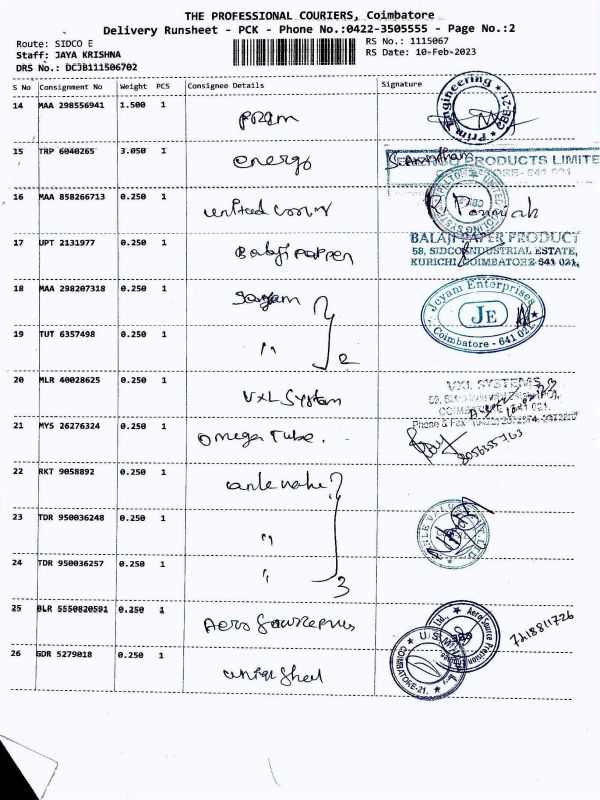 THE PROFESSIONAL COURIERS, Coimbatore
Delivery Runsheet - PCK - Phone No.:0422-3505555 - Page No.:2
Route: SIDCO E
Staff: JAYA KRISHNA
DRS No.: DCJB111506702
RS No.: 1115067
RS Date: 10-Feb-2023
S No Consignment No Weight PCS Consignee Details Signature
14 MAA 298556941 1.500 1 prism
Prim Engineering CBE-21
15 TRP 6040265 3.050 1 energo
PRODUCTS LIMITE
641 021
16 MAA 858266713 0.250 1 united
17 UPT 2131977 0.250 1 Balaji papper
BALAJI PAPER PRODUCT
58, SIDCO INDUSTRIAL ESTATE,
KURICHI COIMBATORE-641 021.
18 MAA 298207318 0.250 1
Jeyam Enterprises JE Coimbatore - 641 021.
19 TUT 6357498 0.250 1 " 2
20 MLR 40028625 0.250 1 VXL System
VXL SYSTEMS
COIMBATORE 641 021.
Phone & Fax
21 MYS 26276324 0.250 1 Omega Tube.
22 RKT 9058892 0.250 1
23 TDR 950036248 0.250 1 "
24 TDR 950036257 0.250 1 " 3
25 BLR 5550820591 0.250 1 Aero
AeroSource Ltd.
7418811726
26 GDR 5279018 0.250 1
COIMBATORE-21.